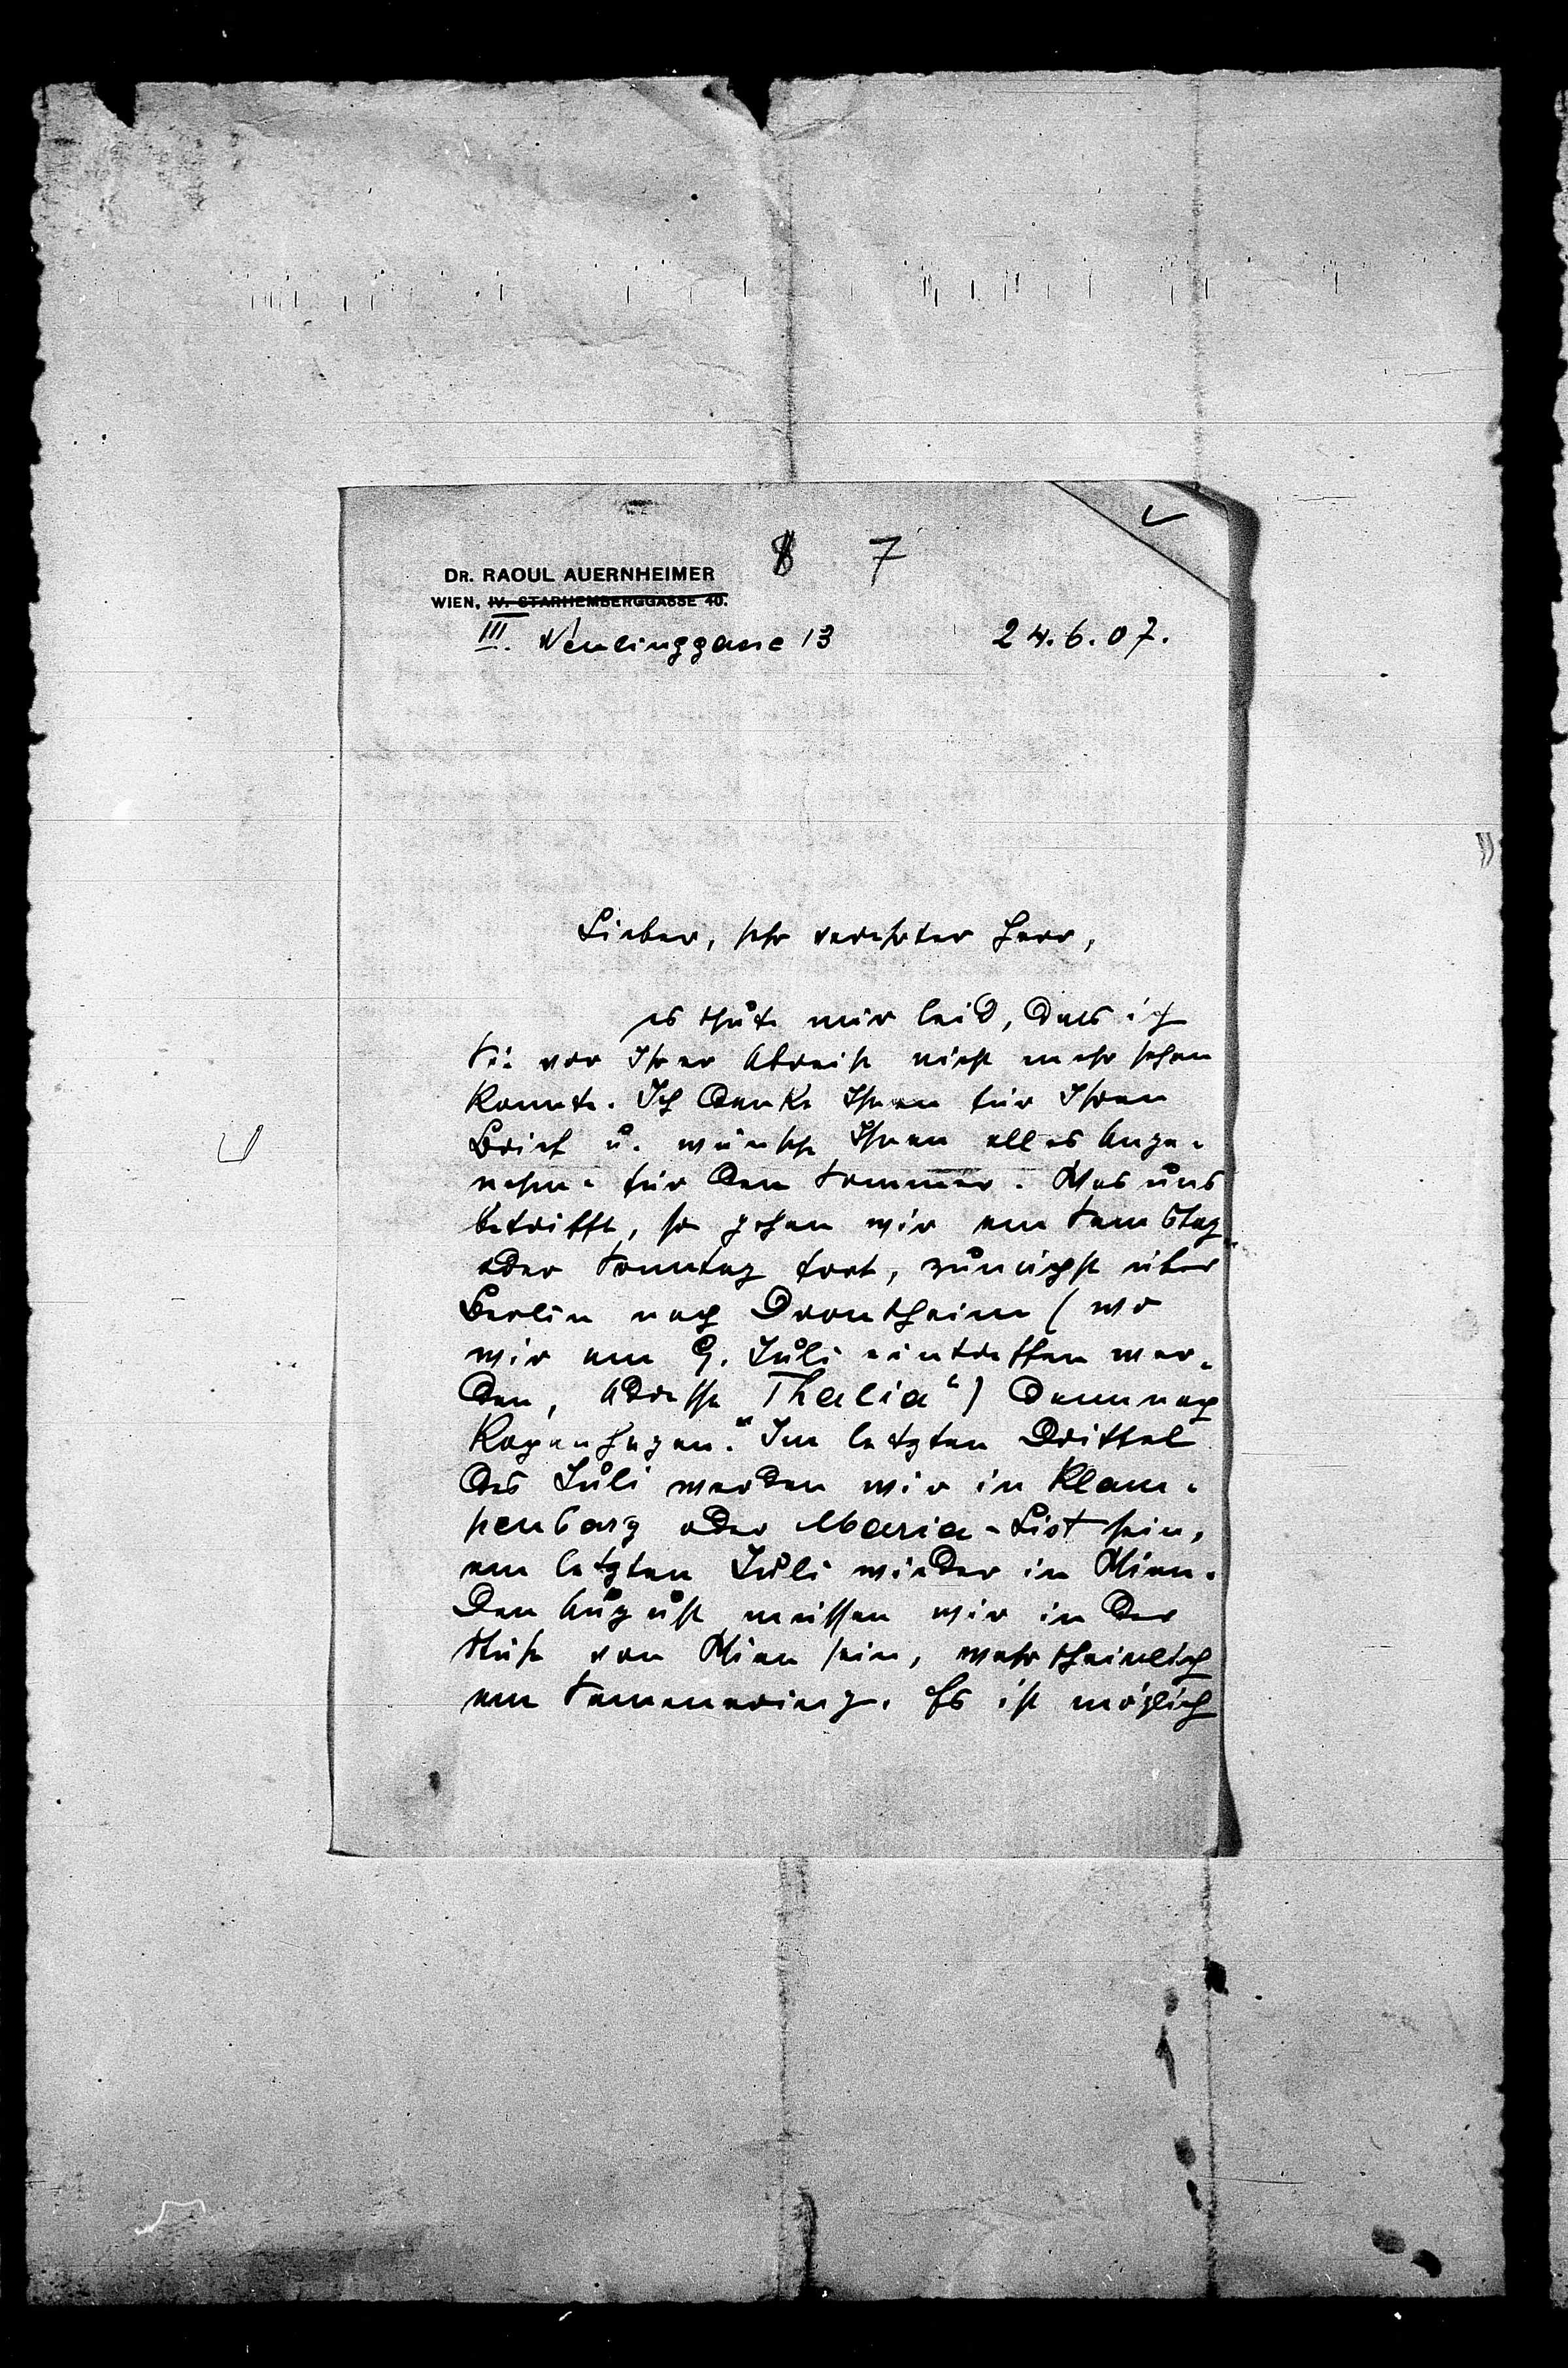 8 7
DR. RAOUL AUERNHEIMER
WIEN, IV. STARHEMBERGGASSE 40.
III. Neulinggasse 13 24.6.07.
Lieber, sehr verehrter Herr,
es thut mir leid, dass ich
Sie vor Ihrer Abreise nicht mehr sehen
konnte. Ich danke Ihnen für Ihren
Brief u. wünsche Ihnen alles Ange-
nehme für den Sommer. Was uns
betrifft, so gehen wir am Samstag
oder Sonntag fort, zunächst über
Berlin nach Drontheim (wo
wir am 9. Juli eintreffen wer-
den, Adresse „Thalia“) dann nach
Kopenhagen. Im letzten Drittel
des Juli werden wir in Klam-
penborg oder Maria-List sein,
am letzten Juli wieder in Wien.
Den August müssen wir in der
Nähe von Wien sein, wahrscheinlich
am Semmering. Es ist möglich